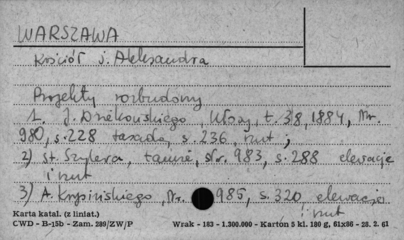 WARSZAWA
Kościół ś. Aleksandra
Projekty rozbudowy
1. J. Dziekońskiego, Kłosy, t. 38, 1884, Nr.
980, s. 228 fasada, s. 236, rzut;
2) St. Szyllera, tamże, Nr. 983, s. 288 elewacje
i rzut
3) A. Krysińskiego, Nr. 985, s. 320, elewacja
i rzut
Karta katal. (z liniat.)
CWD - B-15b - Zam. 289/ZW/P Wrak - 163 - 1.300.000 - Karton 5 kl. 180 g, 61x86 - 28. 2. 61